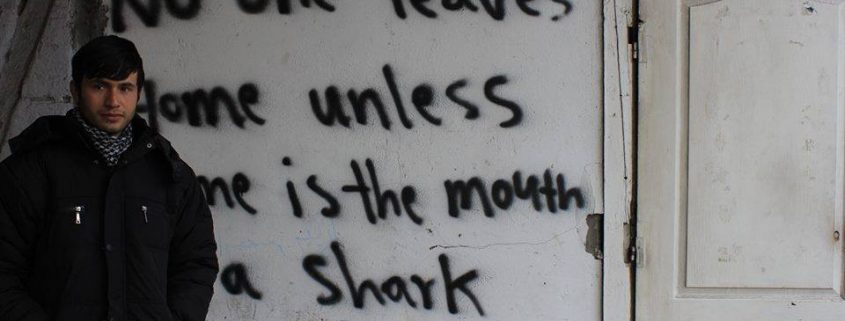 No one leaves
Home unless
me is the mouth
a shark